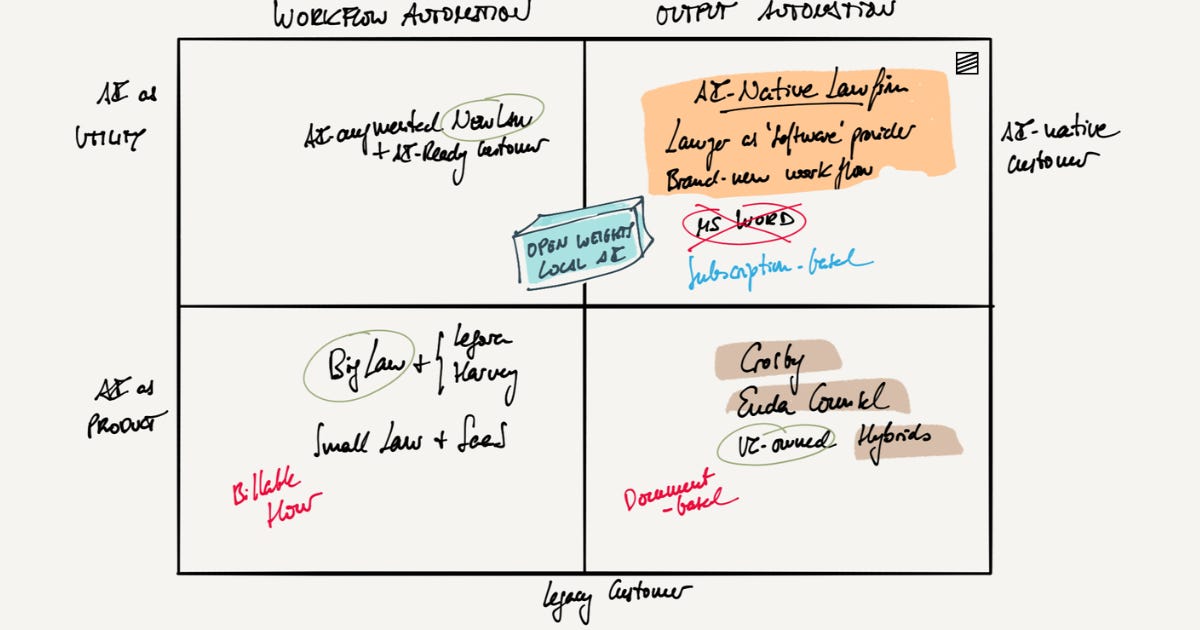 WORKFLOW AUTOMATION
OUTPUT AUTOMATION
AI as
UTILITY
AI-augmented NewLaw
+ AI-Ready Customer
AI-Native Lawfirm
Lawyer as 'software' provider
Brand-new workflow
MS WORD
Subscription-based
AI-native
Customer
OPEN WEIGHTS
LOCAL AI
AI as
PRODUCT
BigLaw + { Legora
Harvey
Small Law + SaaS
Billable
Hour
Crosby
Euda Counsel
VC-owned Hybrids
Document
-based
Legacy Customer